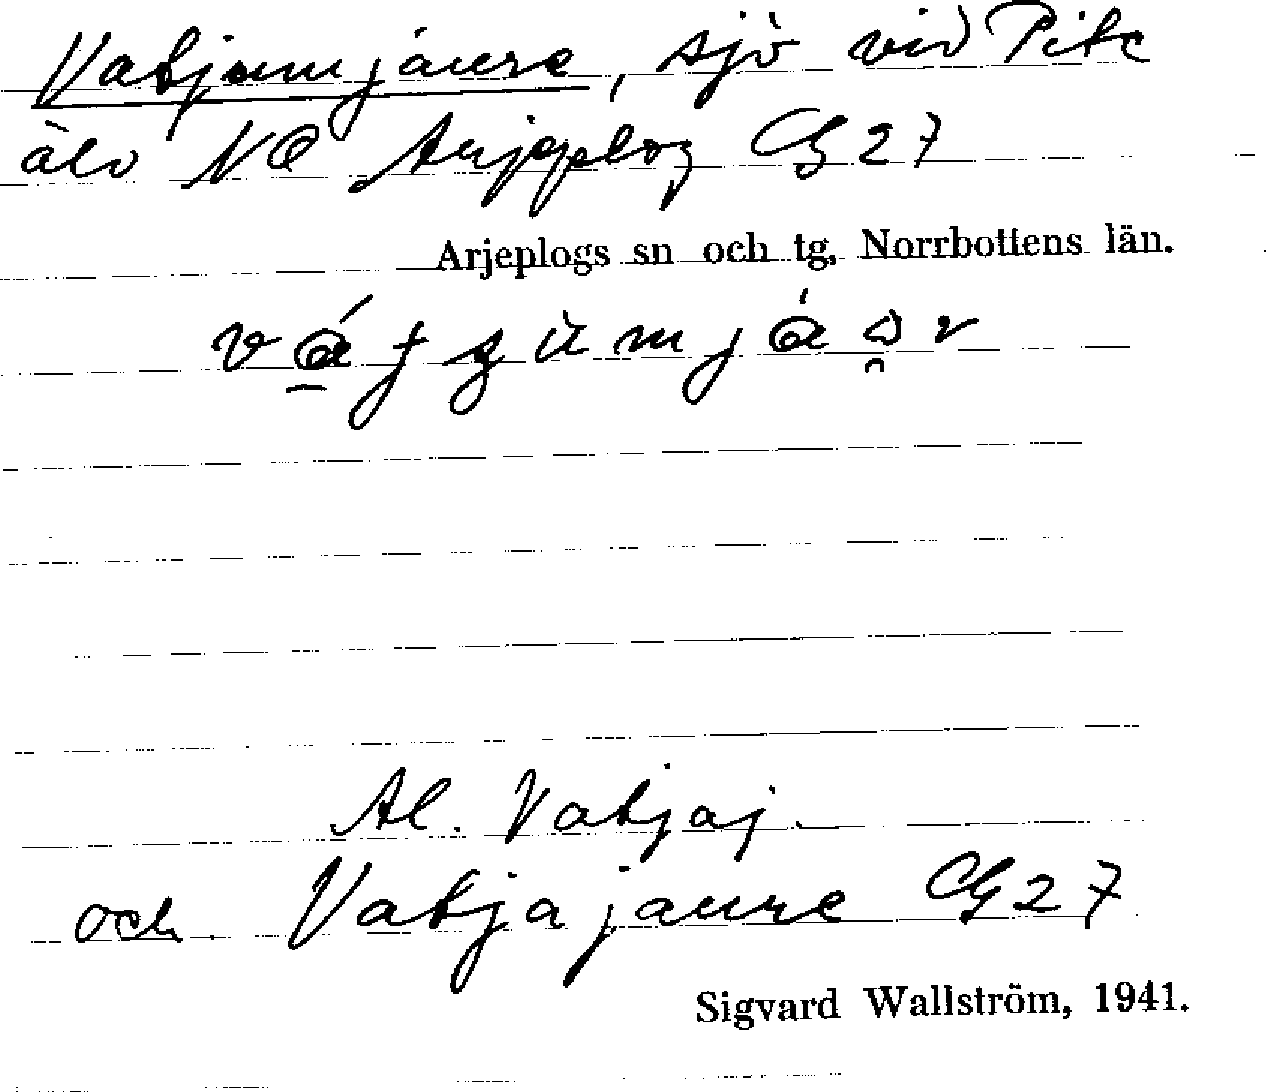 Vatjumjaure, sjö vid Pite
älv NO Arjeplog CG 27
Arjeplogs sn och tg, Norrbottens län.
Al. Vatjaj.
och Vatjajaure CG 27
Sigvard Wallström, 1941.